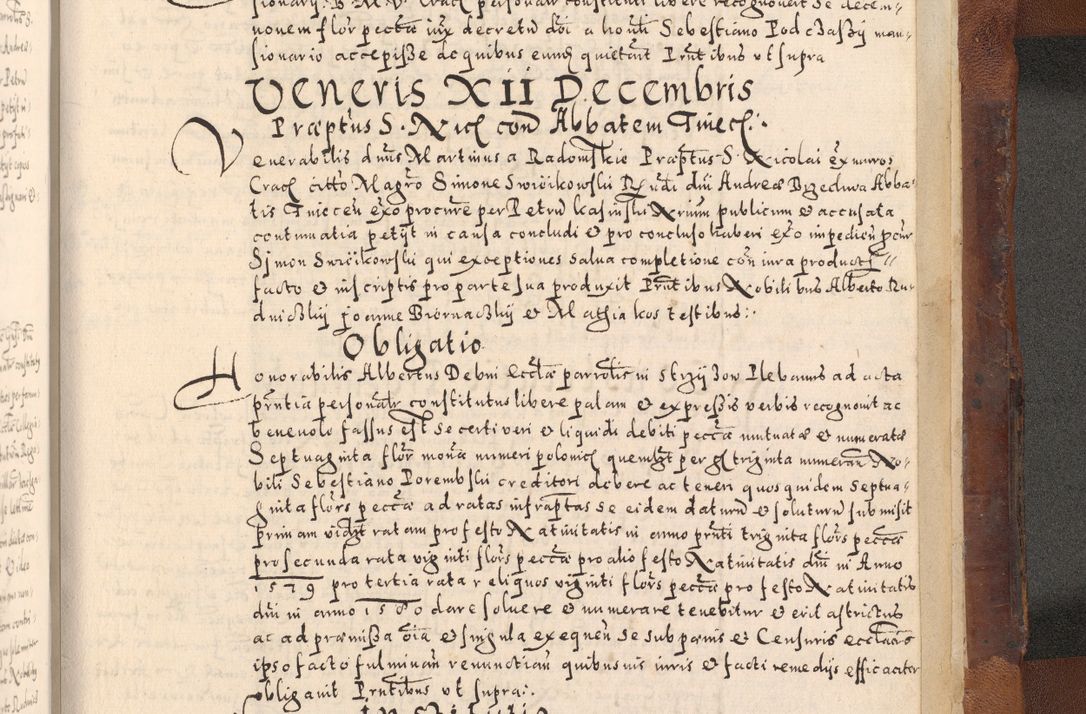 nonem flor pecūa iux decretū dōi a honli Sebestiano Podczasky man=
sionario accepisse ac quibus eund quietavit Prntibus ut supra
Veneris XII Decembris
Præptus S. Nicl con Abbatem Tniecl:
Venerabilis dnus Martinus a Radomskie Præptus S. Nicolai ex muros
Cracl citto Magro Simone Swieikowski Rndi dni Andreæ Brzechwa Abba=
tis Tniecen exo procure per Petru Kasinski Nrium publicum et accusata
contumatia petijt in causa concludi et pro concluso haberi exo impedien pcur
Simon Swieikowski qui exceptiones salva completione con iura producti
facto et in scriptis pro parte sua produxit Prntibus Nobilibus Alberto Rur
dniczkij Joanne Biernaczkij et Mathia kos testibus:
Obligatio
Honorabilis Albertus Debni Ecclæ parrolis in Strzijzow Plebanus ad acta
prntia personalr constitutus libere palam et expressis verbis recognouit ac
beneuolo fassus est se certi veri et liquidi debiti pecca mutuatæ et numeratæ
Septuaginta flor mona numeri polonicl quemlibt per gl triginta numeran No=
bili Sebestiano Porembski creditori debere ac teneri quos quidem septua=
ginta flors pecca ad ratas infraptas se eidem daturu et soluturu submisit
primam vidlt ratam pro festo Natiuitatis in anno prnti triginta flors pecca
pro secunda rata viginti flors pecca pro alio festo Natiuitatis dni in Anno
1579 pro tertia rata reliquos viginti flors pecca pro festo Natiuitatis
dni in anno 1580 dare soluere et numerare tenebitur et erit astrictus
ac ad præmissa oia et singula exequen se sub pænis et Censuris ecclacis
ipso facto fulminan renunctian quibusuis iuris et facti remedijs efficaciter
obligauit Prntibus ut supra: